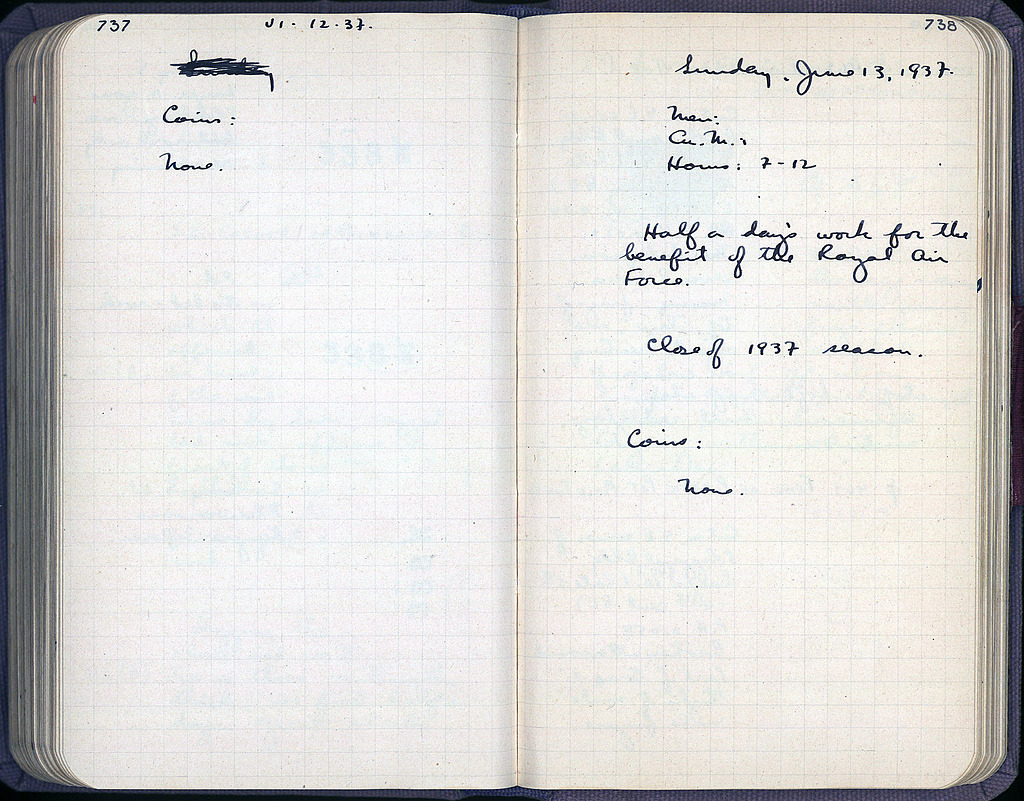 737
VI-12-37.
Sunday
Coins:
None.
738
Sunday, June 13, 1937.
Men:
Cu. M.:
Hours: 7-12
Half a day's work for the
benefit of the Royal Air
Force.
Close of 1937 season.
Coins:
None.